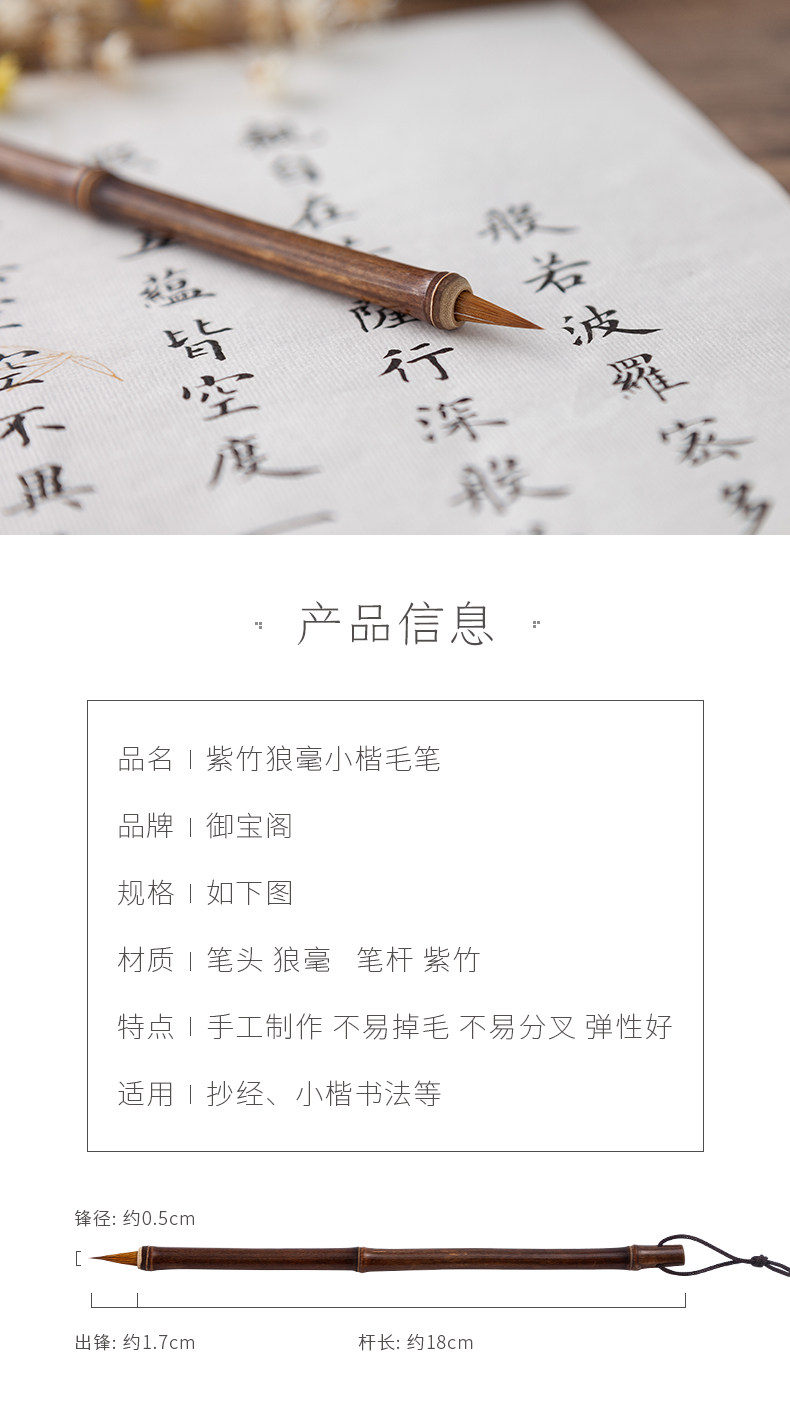 般若波羅密多
自在
薩行深般
五蘊皆空度一
空不異
产品信息
品名 | 紫竹狼毫小楷毛笔
品牌 | 御宝阁
规格 | 如下图
材质 | 笔头 狼毫 笔杆 紫竹
特点 | 手工制作 不易掉毛 不易分叉 弹性好
适用 | 抄经、小楷书法等
锋径: 约0.5cm
出锋: 约1.7cm
杆长: 约18cm